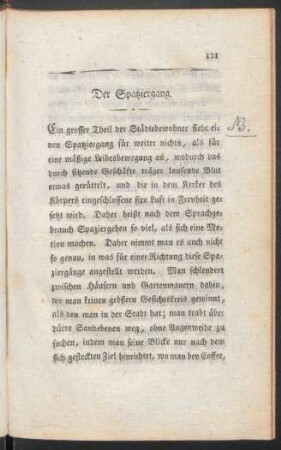 121
Der Spatziergang.
Ein grosser Theil der Städtebewohner sieht ei-
nen Spatziergang für weiter nichts, als für
eine mäßige Leibesbewegung an, wodurch das
durch sitzende Geschäfte träger laufende Blut
etwas gerüttelt, und die in dem Kerker des
Körpers eingeschlossene fixe Luft in Freyheit ge-
setzt wird. Daher heißt nach dem Sprachge-
brauch Spazierengehen so viel, als sich eine Mo-
tion machen. Daher nimmt man es auch nicht
so genau, in was für einer Richtung diese Spa-
ziergänge angestellt werden. Man schlendert
zwischen Häusern und Gartenmauern dahin,
wo man keinen größern Gesichtskreis gewinnt,
als den man in der Stadt hat; man trabt über
dürre Sandebenen weg, ohne Augenweide zu
suchen, indem man seine Blicke nur nach dem
sich gesteckten Ziel hinrichtet, wo man bey Coffee,